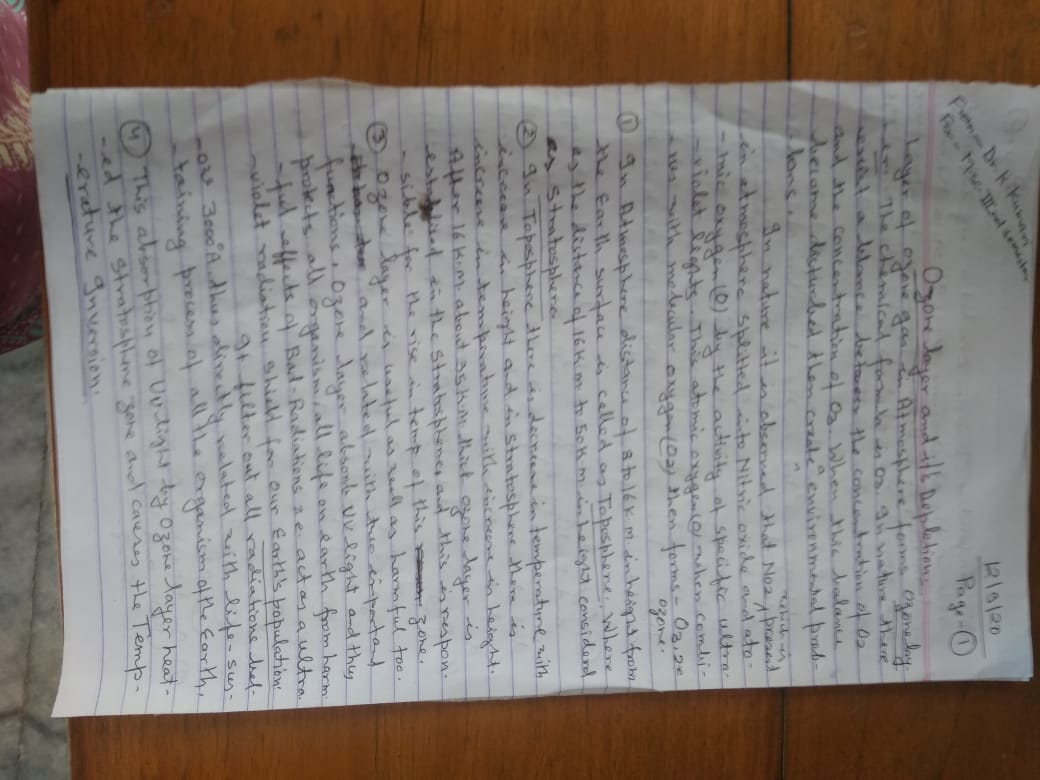 12/9/20
Page - ①
From - Dr K Kumari
For - MSc III rd semester
Ozone layer and it's Depletions
Layer of ozone gas in Atmosphere forms Ozone lay-
-er. The chemical formula is O3. In nature there
exist a balance between the concentration of O2
and the concentration of O3. When this balance
become disturbed then create environmental prob-
-lems.
In nature it is observed that NO2 which is present
in atmosphere splitted into Nitric oxide and ato-
-mic oxygen (O) by the activity of specific ultra
-violet lights. This atomic oxygen (O) when combi-
-nes with molecular oxygen (O2) then forms - O3, i.e
ozone.
① In Atmosphere distance of 8 to 16 K m in height from
the Earth surface is called as Toposphere. Where
as the distance of 16 K m to 50 K m in height considerd
as Stratosphere
② In Toposphere there is decrease in temperature with
increase in height and in stratosphere there is
increase in temprature with increase in height.
After 16 K m about 35 K m thick ozone layer is
establised in the stratosphere and this is respon-
-sible for the rise in temp of this zone.
③ Ozone layer is useful as well as harmful too.
and related with two important
functions, Ozone layer absorb UV light and thus
protects all organism, all life on earth from harm
-ful effects of Bad Radiations i.e. act as a ultra-
-violet radiation shield for our Earth's population.
It filter out all radiations bel-
-ow 3000 A°, thus directly related with life-sus-
-taining process of all the organism of the Earth.
④ This absorption of UV light by Ozone layer heat-
-ed the stratosphere zone and causes the Temp-
-erature Inversion.